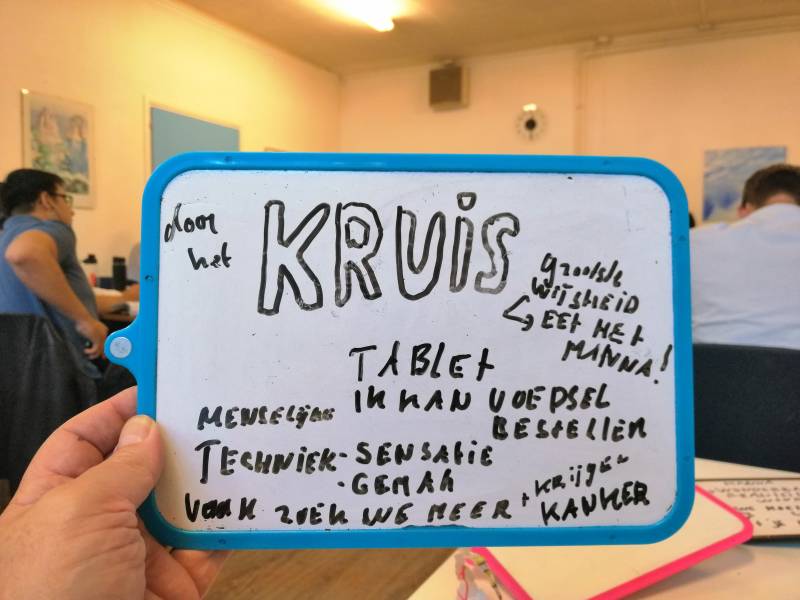 door
het
KRUiS
grootste
WIJSHEID
EET HET
MANNA!
TABLET
IK KAN VOEDSEL
BESTELLEN
MENSELIJKE
TECHNIEK · SENSATIE
· GEMAK
VAAK ZOEK WE MEER + KRIJGEN
KANKER